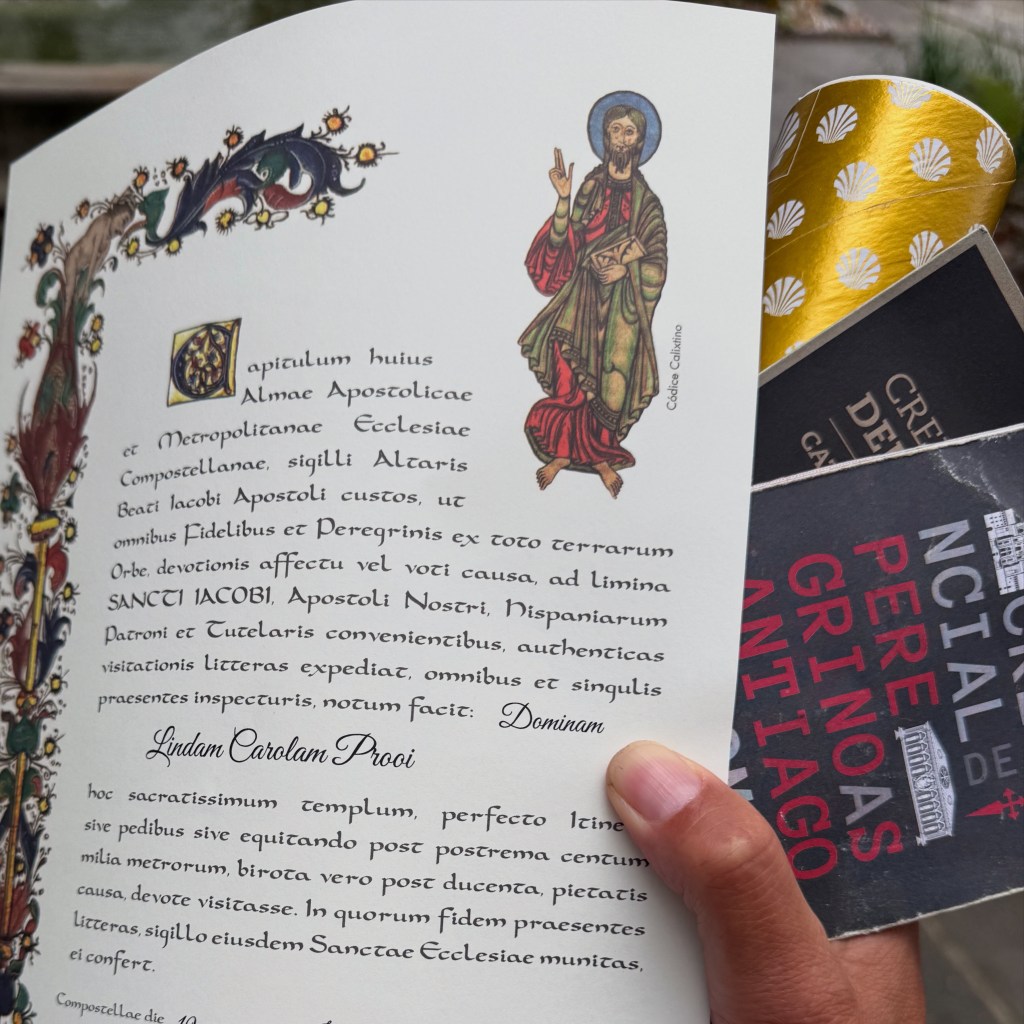 Capitulum huius
Almae Apostolicae
et Metropolitanae Ecclesiae
Compostellanae, sigilli Altaris
Beati Iacobi Apostoli custos, ut
omnibus Fidelibus et Peregrinis ex toto terrarum
Orbe, devotionis affectu vel voti causa, ad limina
SANCTI IACOBI, Apostoli Nostri, Hispaniarum
Patroni et Tutelaris convenientibus, authenticas
visitationis litteras expediat, omnibus et singulis
praesentes inspecturis, notum facit: Dominam
Lindam Carolam Prooi
hoc sacratissimum templum, perfecto Itine
sive pedibus sive equitando post postrema centum
milia metrorum, birota vero post ducenta, pietatis
causa, devote visitasse. In quorum fidem praesentes
litteras, sigillo eiusdem Sanctae Ecclesiae munitas,
ei confert.
Compostellae die
Códice Calixtino
CRE
DE
CA
CRE
NCIAL DE
PERE
GRINOAS
ANTIAGO